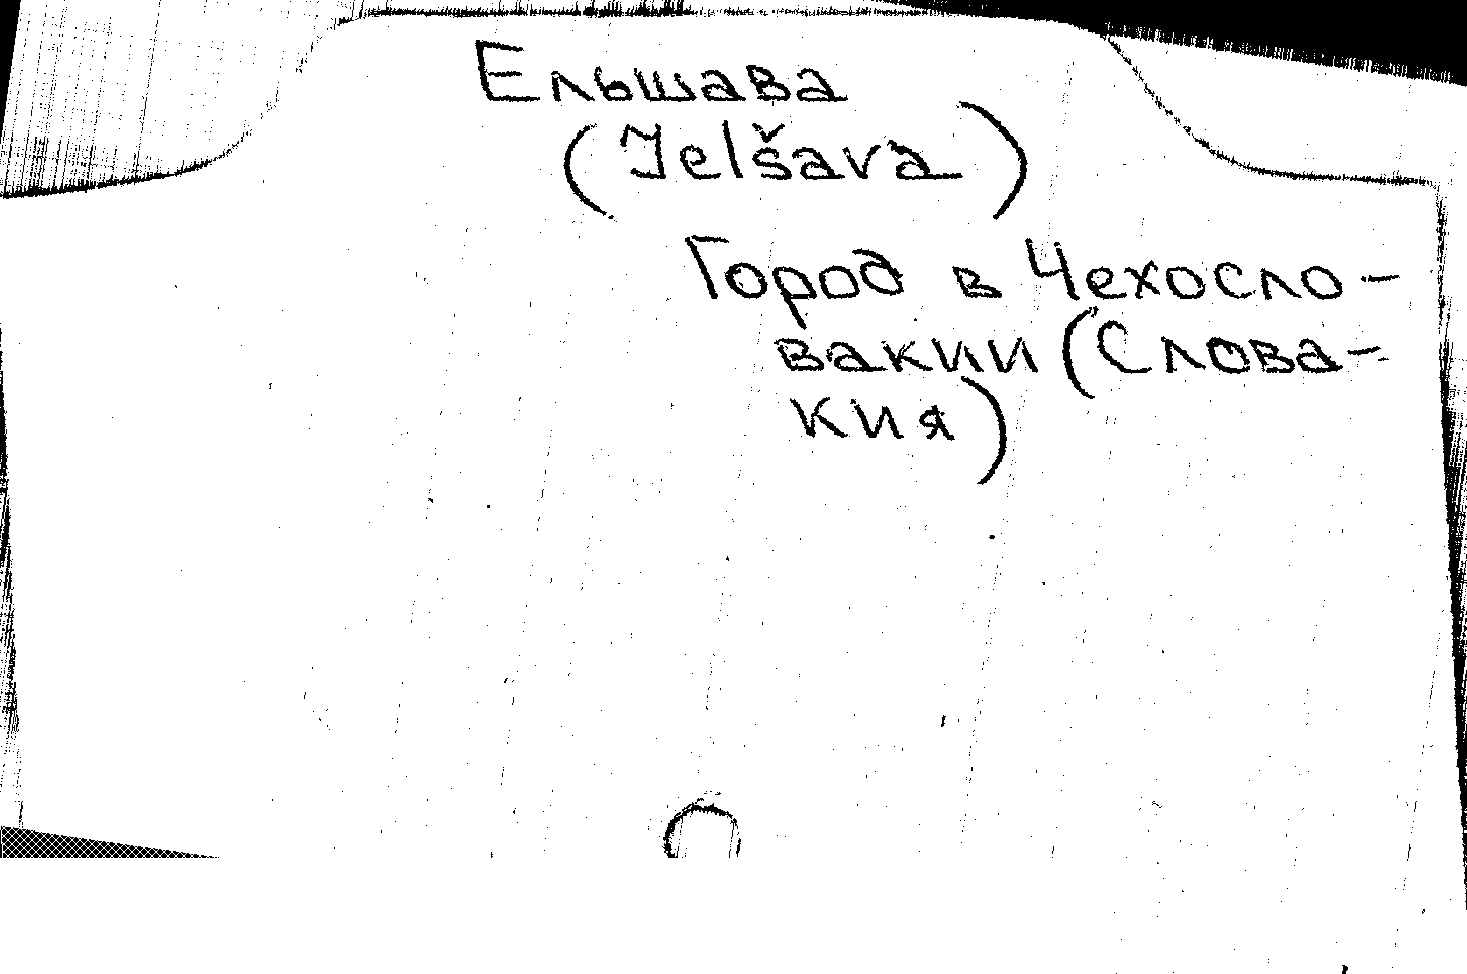 Ельшава
(Jelšava)
Город в Чехосло-
вакии (Слова-
кия)